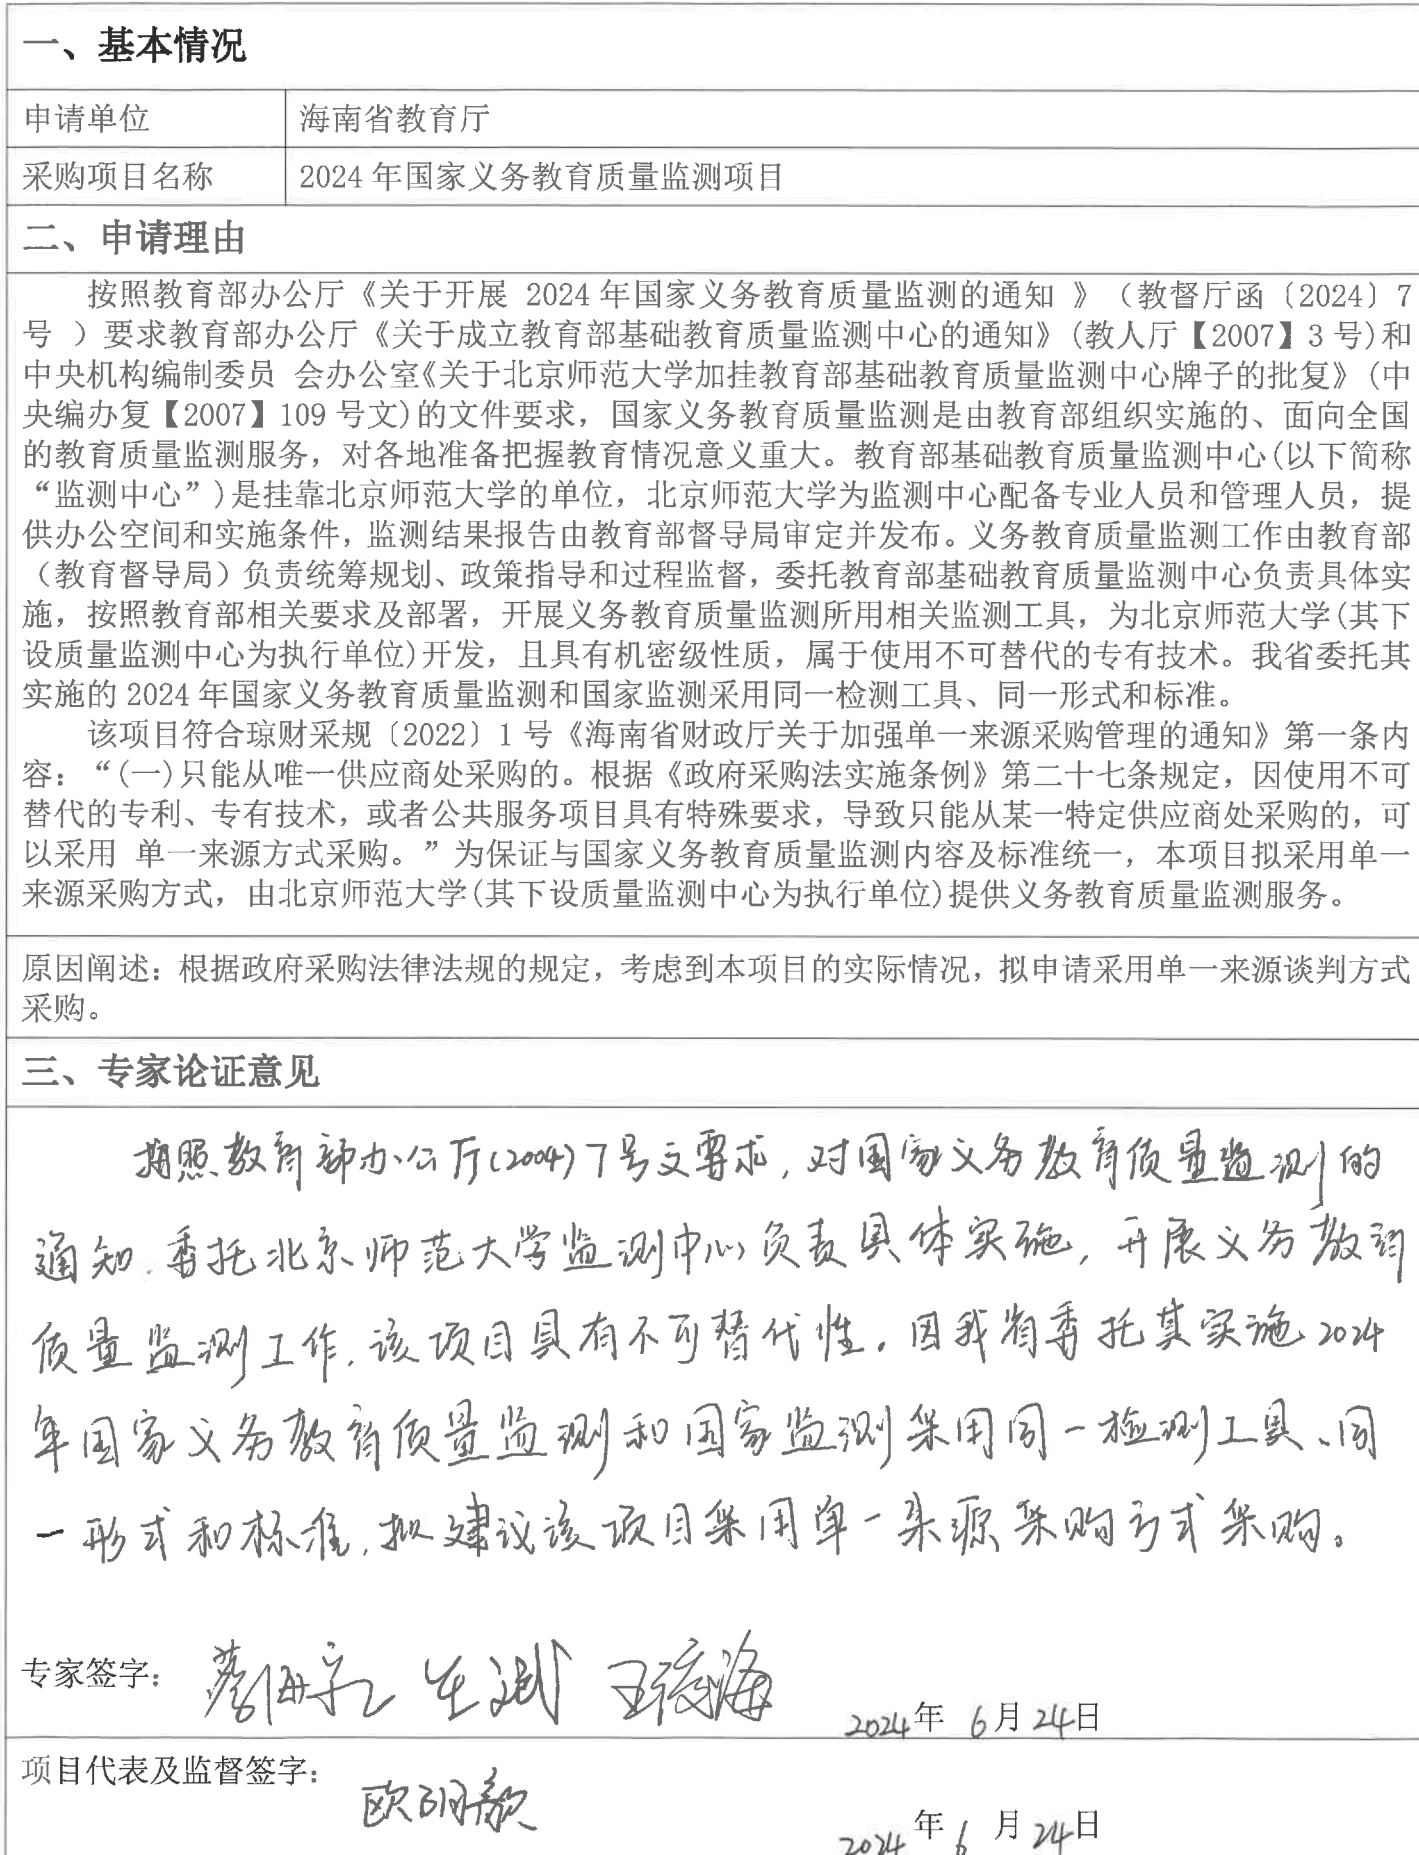 一、基本情况
申请单位 海南省教育厅
采购项目名称 2024年国家义务教育质量监测项目
二、申请理由
按照教育部办公厅《关于开展 2024年国家义务教育质量监测的通知 》（教督厅函〔2024〕7
号 ）要求教育部办公厅《关于成立教育部基础教育质量监测中心的通知》(教人厅【2007】3号)和
中央机构编制委员 会办公室《关于北京师范大学加挂教育部基础教育质量监测中心牌子的批复》(中
央编办复【2007】109号文)的文件要求，国家义务教育质量监测是由教育部组织实施的、面向全国
的教育质量监测服务，对各地准备把握教育情况意义重大。教育部基础教育质量监测中心(以下简称
“监测中心”)是挂靠北京师范大学的单位，北京师范大学为监测中心配备专业人员和管理人员，提
供办公空间和实施条件，监测结果报告由教育部督导局审定并发布。义务教育质量监测工作由教育部
（教育督导局）负责统筹规划、政策指导和过程监督，委托教育部基础教育质量监测中心负责具体实
施，按照教育部相关要求及部署，开展义务教育质量监测所用相关监测工具，为北京师范大学(其下
设质量监测中心为执行单位)开发，且具有机密级性质，属于使用不可替代的专有技术。我省委托其
实施的2024年国家义务教育质量监测和国家监测采用同一检测工具、同一形式和标准。
该项目符合琼财采规〔2022〕1号《海南省财政厅关于加强单一来源采购管理的通知》第一条内
容：“(一)只能从唯一供应商处采购的。根据《政府采购法实施条例》第二十七条规定，因使用不可
替代的专利、专有技术，或者公共服务项目具有特殊要求，导致只能从某一特定供应商处采购的，可
以采用 单一来源方式采购。”为保证与国家义务教育质量监测内容及标准统一，本项目拟采用单一
来源采购方式，由北京师范大学(其下设质量监测中心为执行单位)提供义务教育质量监测服务。
原因阐述：根据政府采购法律法规的规定，考虑到本项目的实际情况，拟申请采用单一来源谈判方式
采购。
三、专家论证意见
按照教育部办公厅(2004)7号文要求，对国家义务教育质量监测的
通知，委托北京师范大学监测中心负责具体实施，开展义务教育
质量监测工作，该项目具有不可替代性。因我省委托其实施2024
年国家义务教育质量监测和国家监测采用同一检测工具、同
一形式和标准，拟建议该项目采用单一来源采购方式采购。
专家签字：
2024年 6月24日
项目代表及监督签字：
2024年 6月24日